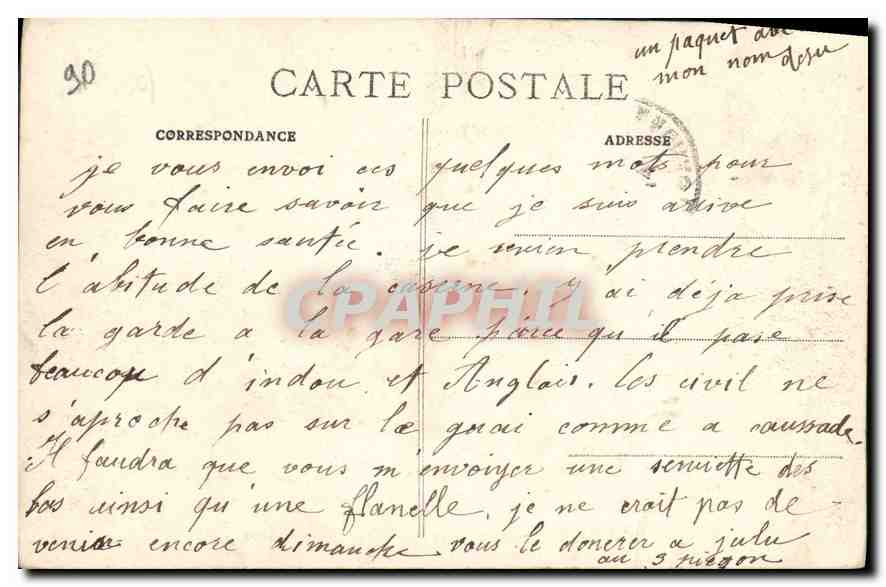 un paquet avec
mon nom desu
90
CARTE POSTALE
CORRESPONDANCE
ADRESSE
je vous envoi ces quelques mots pour
vous faire savoir que je suis arive
en bonne santée. je prendre
l'abitude de la caserne. J'ai déja prise
la garde a la gare parce qu'il pase
beaucoup d'indou et Anglais. Les civil ne
s'aproche pas sur le quai comme a caussade.
Il faudra que vous m'envoiyer une serviette des
bas ainsi qu'une flanelle. je ne croit pas de
venir encore dimanche vous le donerer a julu
au 3 pigeon
CPAPHIL